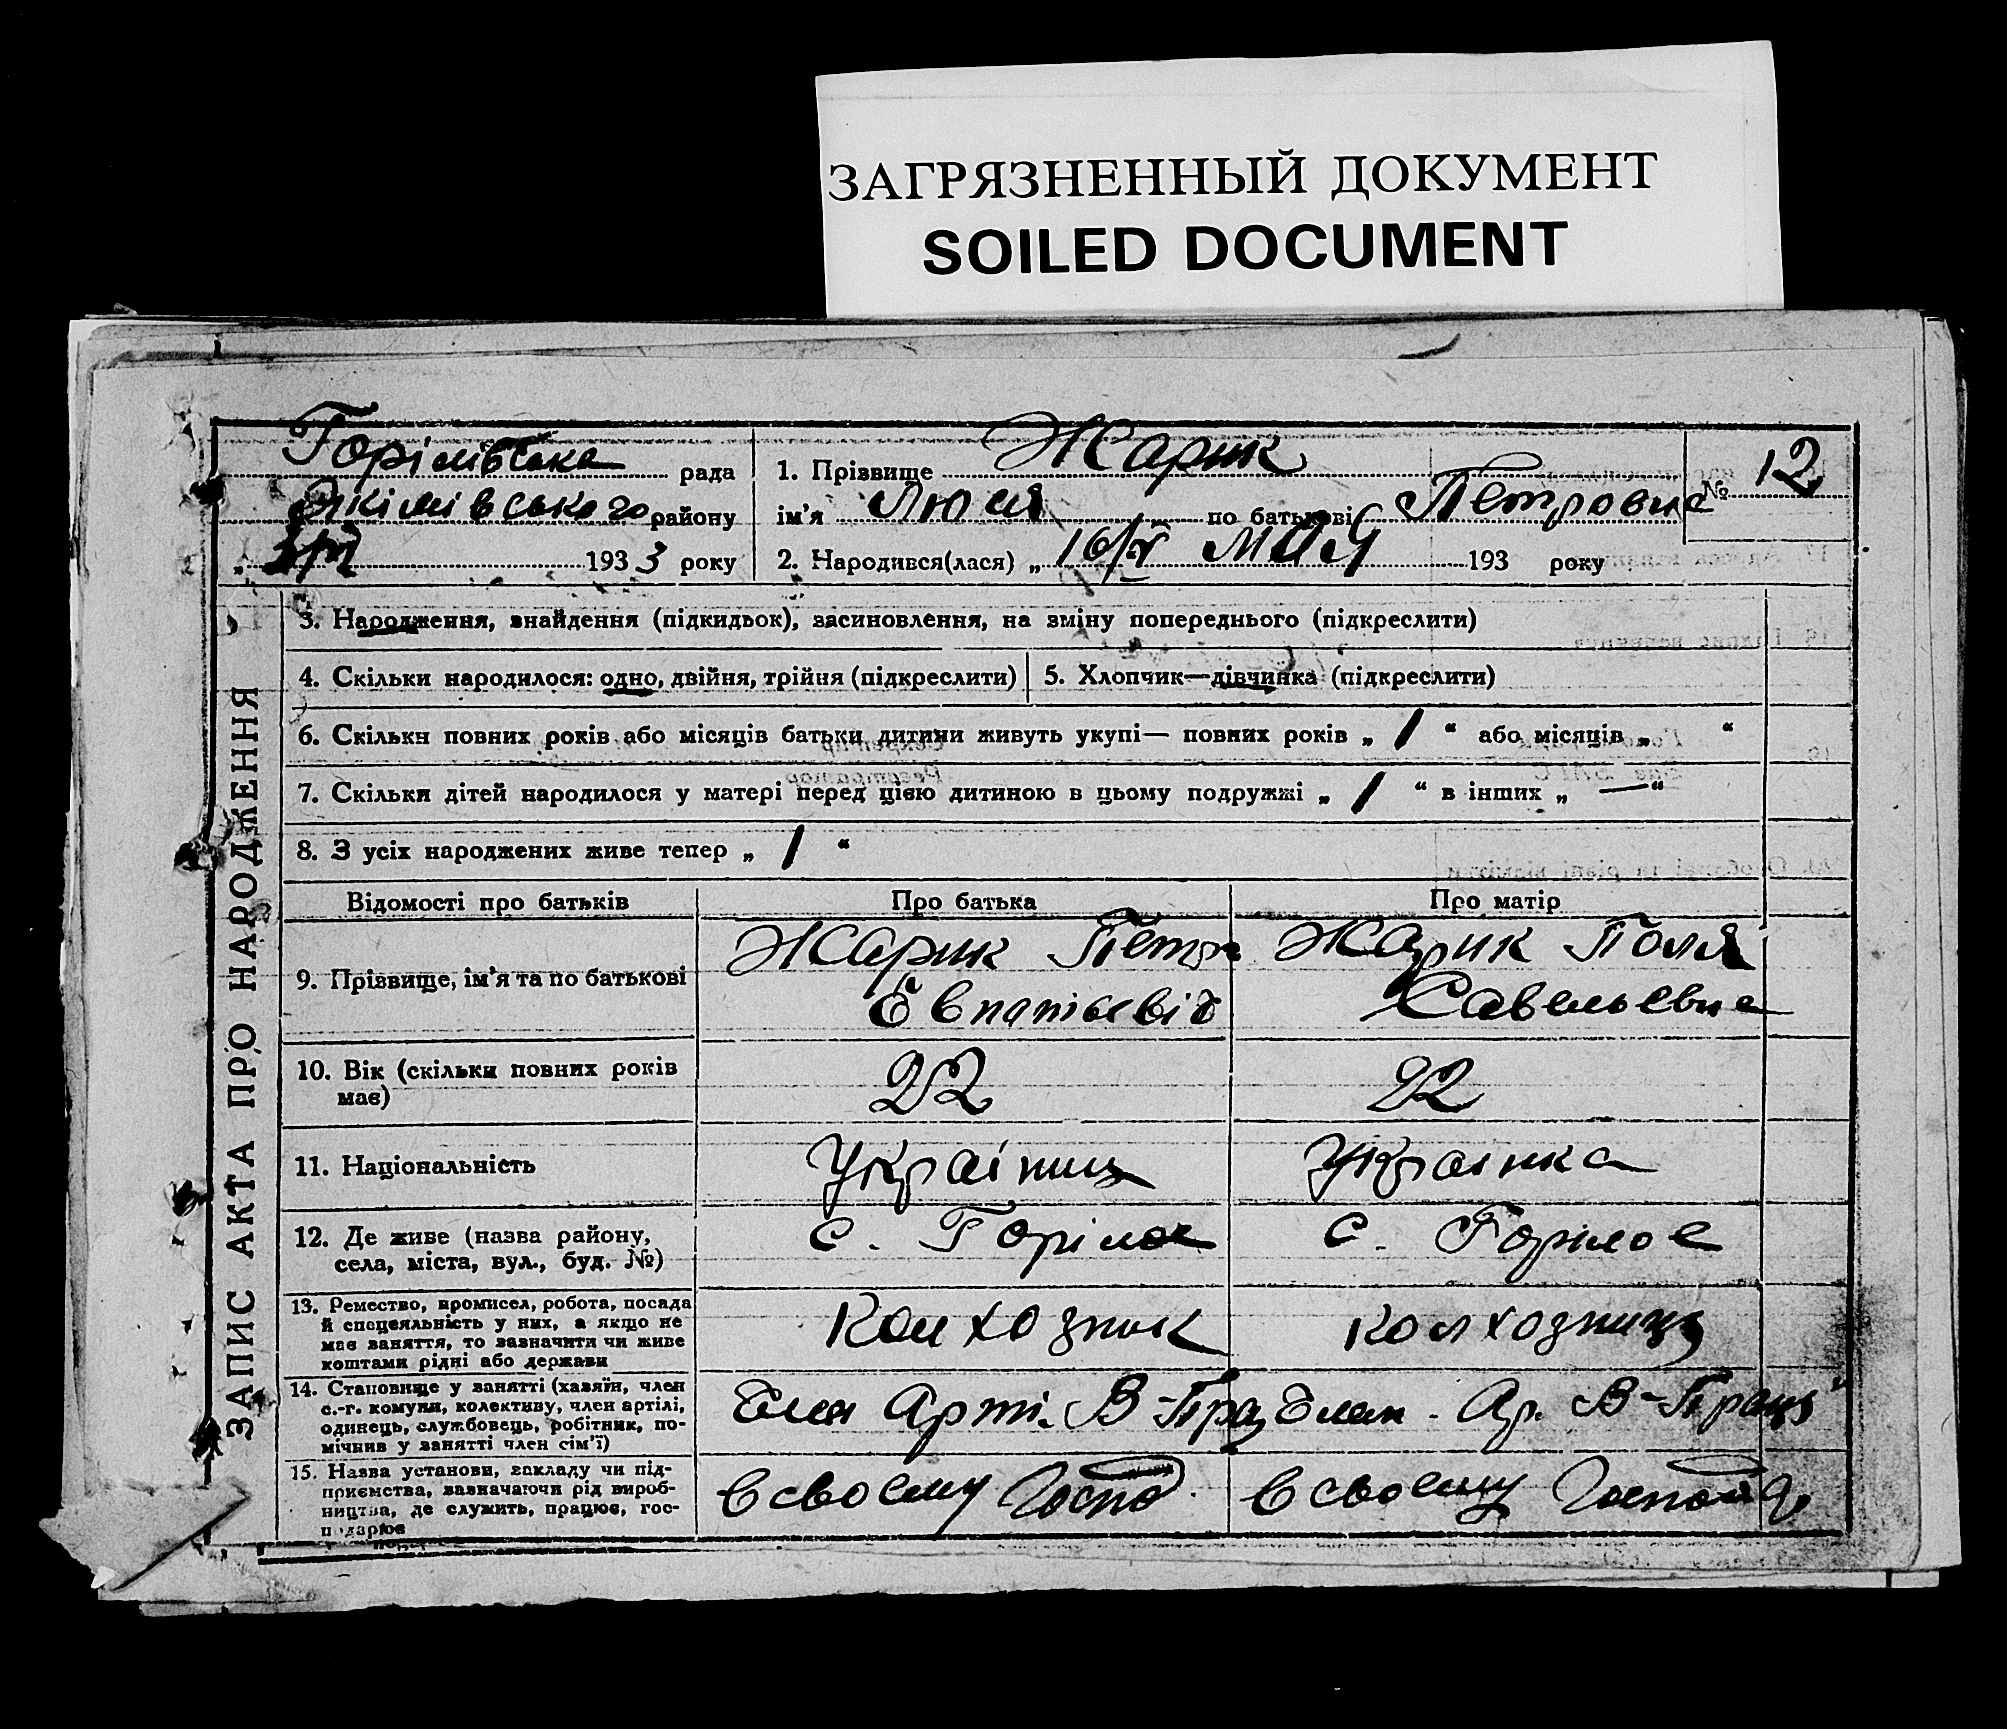 ЗАГРЯЗНЕННЫЙ ДОКУМЕНТ
SOILED DOCUMENT
ЗАПИС АКТА ПРО НАРОДЖЕННЯ
Горілівська рада
Якімівського району
193 3 року
1. Прізвище Жарик
ім'я Люся по батькові Петровна
2. Народився(лася) „ 16/V мая 193 року
№ 12
3. Народження, знайдення (підкидьок), засиновлення, на зміну попереднього (підкреслити)
4. Скільки народилося: одно, двійня, трійня (підкреслити)
5. Хлопчик—дівчинка (підкреслити)
6. Скільки повних років або місяців батьки дитини живуть укупі— повних років „ 1 “ або місяців „ “
7. Скільки дітей народилося у матері перед цією дитиною в цьому подружжі „ 1 “ в інших „ — “
8. З усіх народжених живе тепер „ 1 “
Відомості про батьків Про батька Про матір
9. Прізвище, ім'я та по батькові
Жарик Петр
Жарик Поля
Савельевна
10. Вік (скільки повних років
має)
22 22
11. Національність
Україниц Украінка
12. Де живе (назва району,
села, міста, вул., буд. №)
с. Горілое с. Горілое
13. Ремество, промисел, робота, посада
й спецеяльність у них, а якщо не
має заняття, то зазначити чи живе
коштами рідні або держави
Колхозник колхозниця
14. Становище у занятті (хазяїн, член
с.-г. комуни, колективу, член артілі,
одинець, службовець, робітник, по-
мічнив у занятті член сім'ї)
Член Арті. В-Прац Член. Ар. В-Праця"
15. Назва установи, закладу чи під-
приємства, зазначаючи рід вироб-
ництва, де служить, працює, гос-
подарює
в своему Госпо в своему Господа